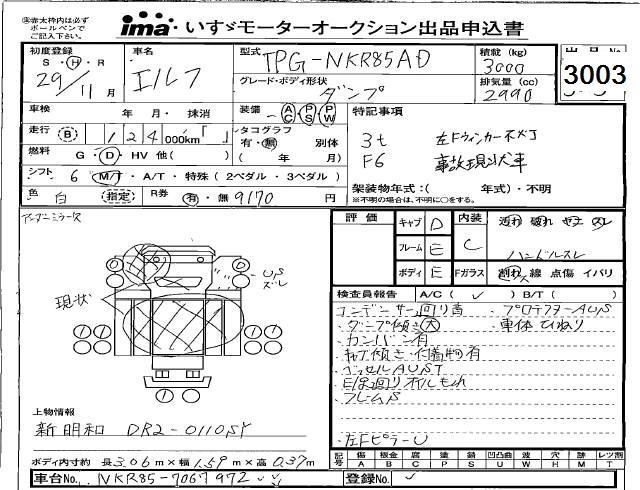 ※赤太枠内は必ず
ボールペンで
ご記入下さい。
ima いすゞモーターオークション出品申込書
初度登録
S・H・R
29/11月
車名
エルフ
型式
TPG-NKR85AD
積載 (kg)
3000
グレード・ボディ形状
ダンプ
排気量 (cc)
2990
3003
車検 年 月・ 抹消
装備 AC PS PW
特記事項
走行 B 124000km「 」
タコグラフ
有・無 別体
( 年 月)
3t 左Fウィンカー不灯
F6 事故現状車
燃料 G・D・HV 他( )
シフト 6 MT・A/T・特殊 (2ペダル・3ペダル)
架装物年式:( 年式)・不明
※不明の場合は、不明に○をする。
色 白 (指定) R券 有・無 9170 円
アンダーミラー欠
US
ズレ
現状
評価 キャブ D 内装 汚れ 破れ ヤケ スレ
フレーム E C ハンドルスレ
ボディ E Fガラス 割れ 線 点傷 イパリ
検査員報告 A/C( ✓ ) B/T( )
コンデンサー回り青 ・プロテクターAUS
・ダンプ傾き大 ・車体ひねり
・カンバン有
・キャブ傾き・
・ベッセルAUST
・E/G回りオイルもれ
・フレームS
・左FピラーU
上物情報
新明和 DR2-0110SY
ボディ内寸約 長3.06m×幅1.59m×高0.37m
記号 傷 A 板金 B 腐 C 塗 P 錆 S 凹凸曲 U 波 W 穴 H 跡 M レツ剤 T
車台No. NKR85-7067972
登録No.